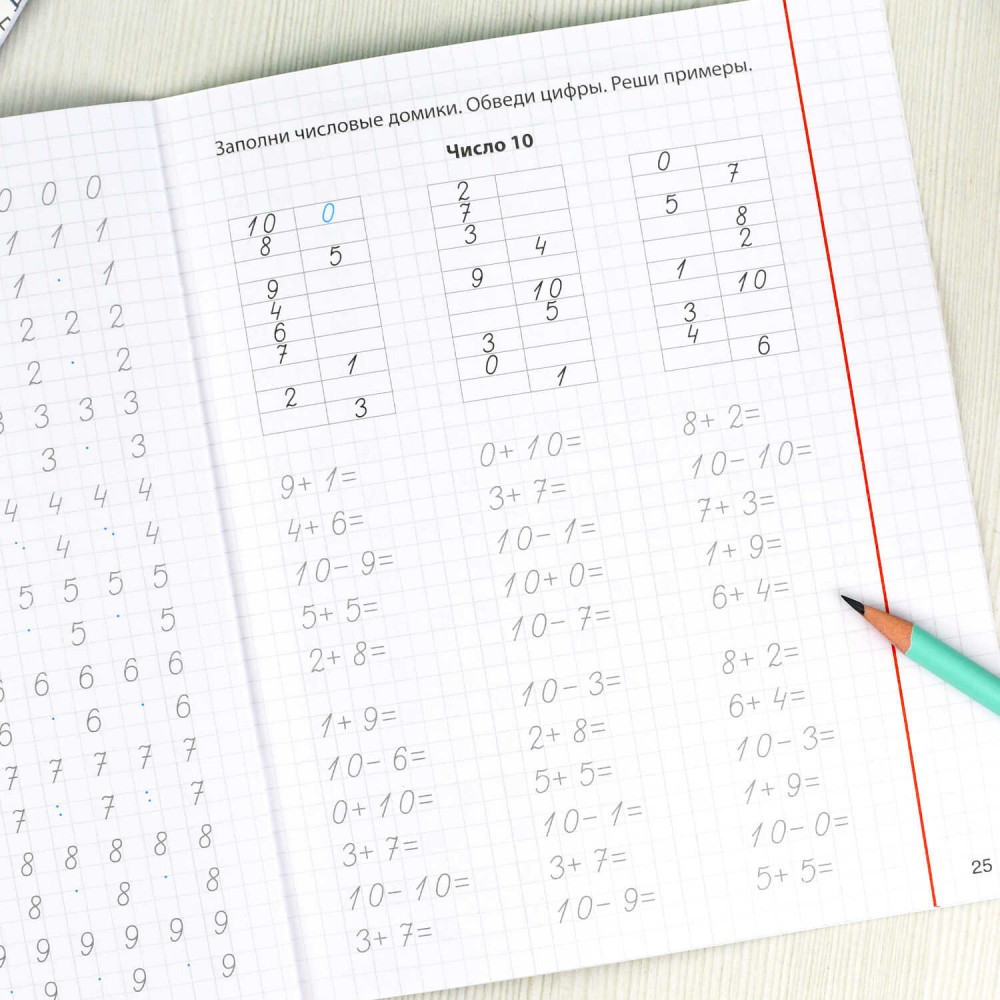 0 0 0
1 1 1
1 · 1
2 2 2
2 · 2
3 3 3 3
3 · 3
4 4 4 4
· 4 · 4
5 5 5 5
· 5 · 5
6 6 6 6 6
6 · 6 · 6
7 7 7 7 7
7 : 7 : 7
8 8 8 8 8
8 · 8 · 8
9 9 9 9 9 9
· 9 · 9 · 9
Заполни числовые домики. Обведи цифры. Реши примеры.
Число 10
10 0
8
5
9
4
6
7
1
2
3
2
7
3
4
9
10
5
3
0
1
0
7
5
8
2
1
10
3
4
6
9+ 1=
4+ 6=
10- 9=
5+ 5=
2+ 8=
0+ 10=
3+ 7=
10- 1=
10+ 0=
10- 7=
8+ 2=
10- 10=
7+ 3=
1+ 9=
6+ 4=
1+ 9=
10- 6=
0+ 10=
3+ 7=
10- 10=
3+ 7=
10- 3=
2+ 8=
5+ 5=
10- 1=
3+ 7=
10- 9=
8+ 2=
6+ 4=
10- 3=
1+ 9=
10- 0=
5+ 5=
25